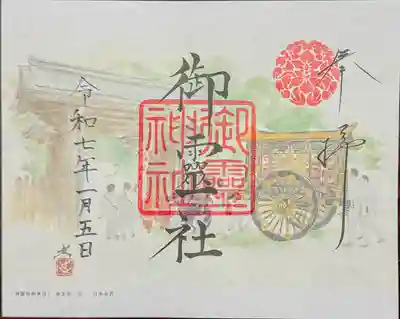 奉拝
御靈社
御靈神社
令和七年一月五日